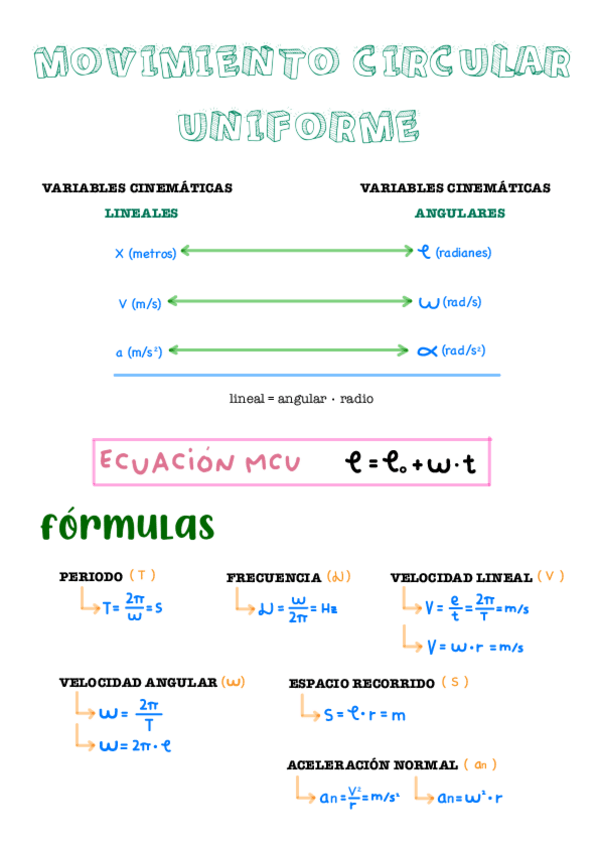 MOVIMIENTO CIRCULAR
UNIFORME
VARIABLES CINEMÁTICAS
LINEALES
VARIABLES CINEMÁTICAS
ANGULARES
X (metros) φ (radianes)
V (m/s) ω (rad/s)
a (m/s²) α (rad/s²)
lineal = angular · radio
ECUACIÓN MCU φ = φ₀ + ω · t
fórmulas
PERIODO (T)
T = 2π/ω = s
FRECUENCIA (ν)
ν = ω/2π = Hz
VELOCIDAD LINEAL (V)
V = e/t = 2π/T = m/s
V = ω · r = m/s
VELOCIDAD ANGULAR (ω)
ω = 2π/T
ω = 2π · φ
ESPACIO RECORRIDO (S)
S = φ · r = m
ACELERACIÓN NORMAL (an)
an = V²/r = m/s²
an = ω² · r